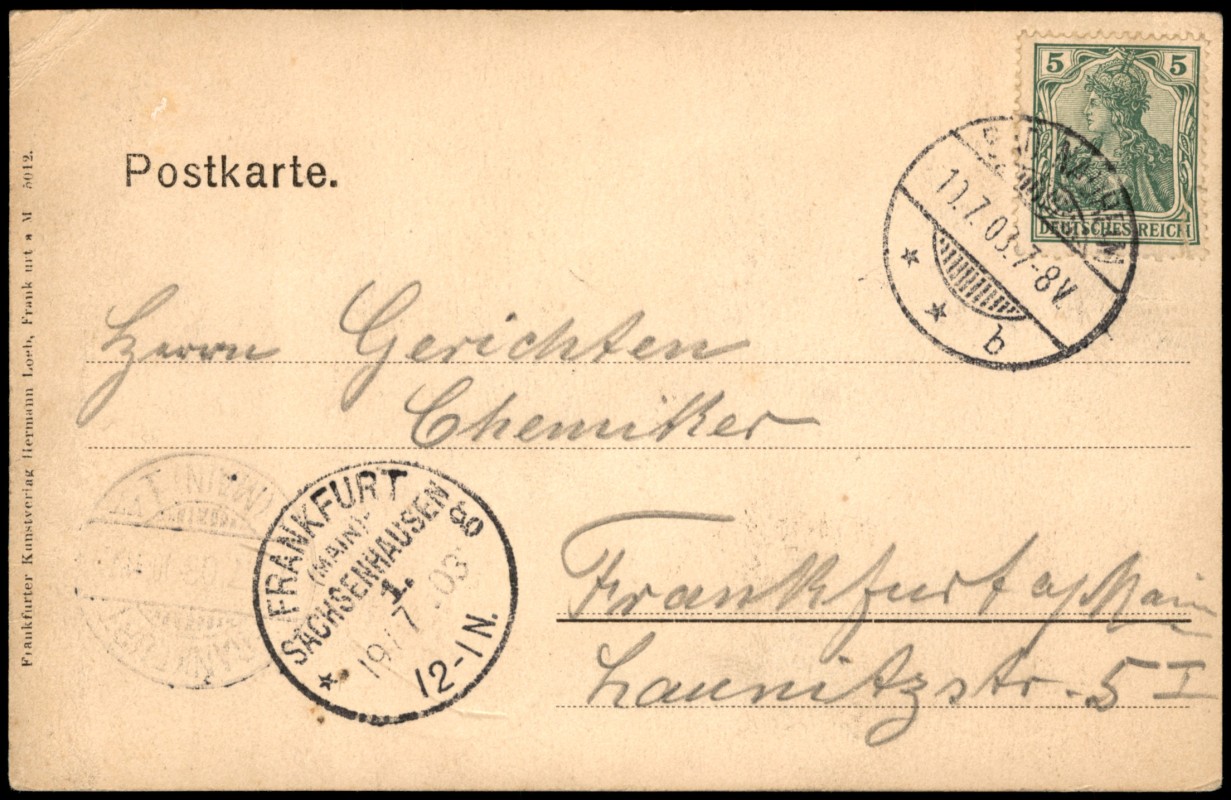 5 5
DEUTSCHES REICH
Postkarte.
7.03.7-8V
b
Herrn Gerichten
Chemiker
FRANKFURT
(MAIN)-
SACHSENHAUSEN
1.
19/7 03
12-1N.
Frankfurt a/Main
Launitzstr. 5 I
Frankfurter Kunstverlag Hermann Loeb, Frankfurt a M 5012.